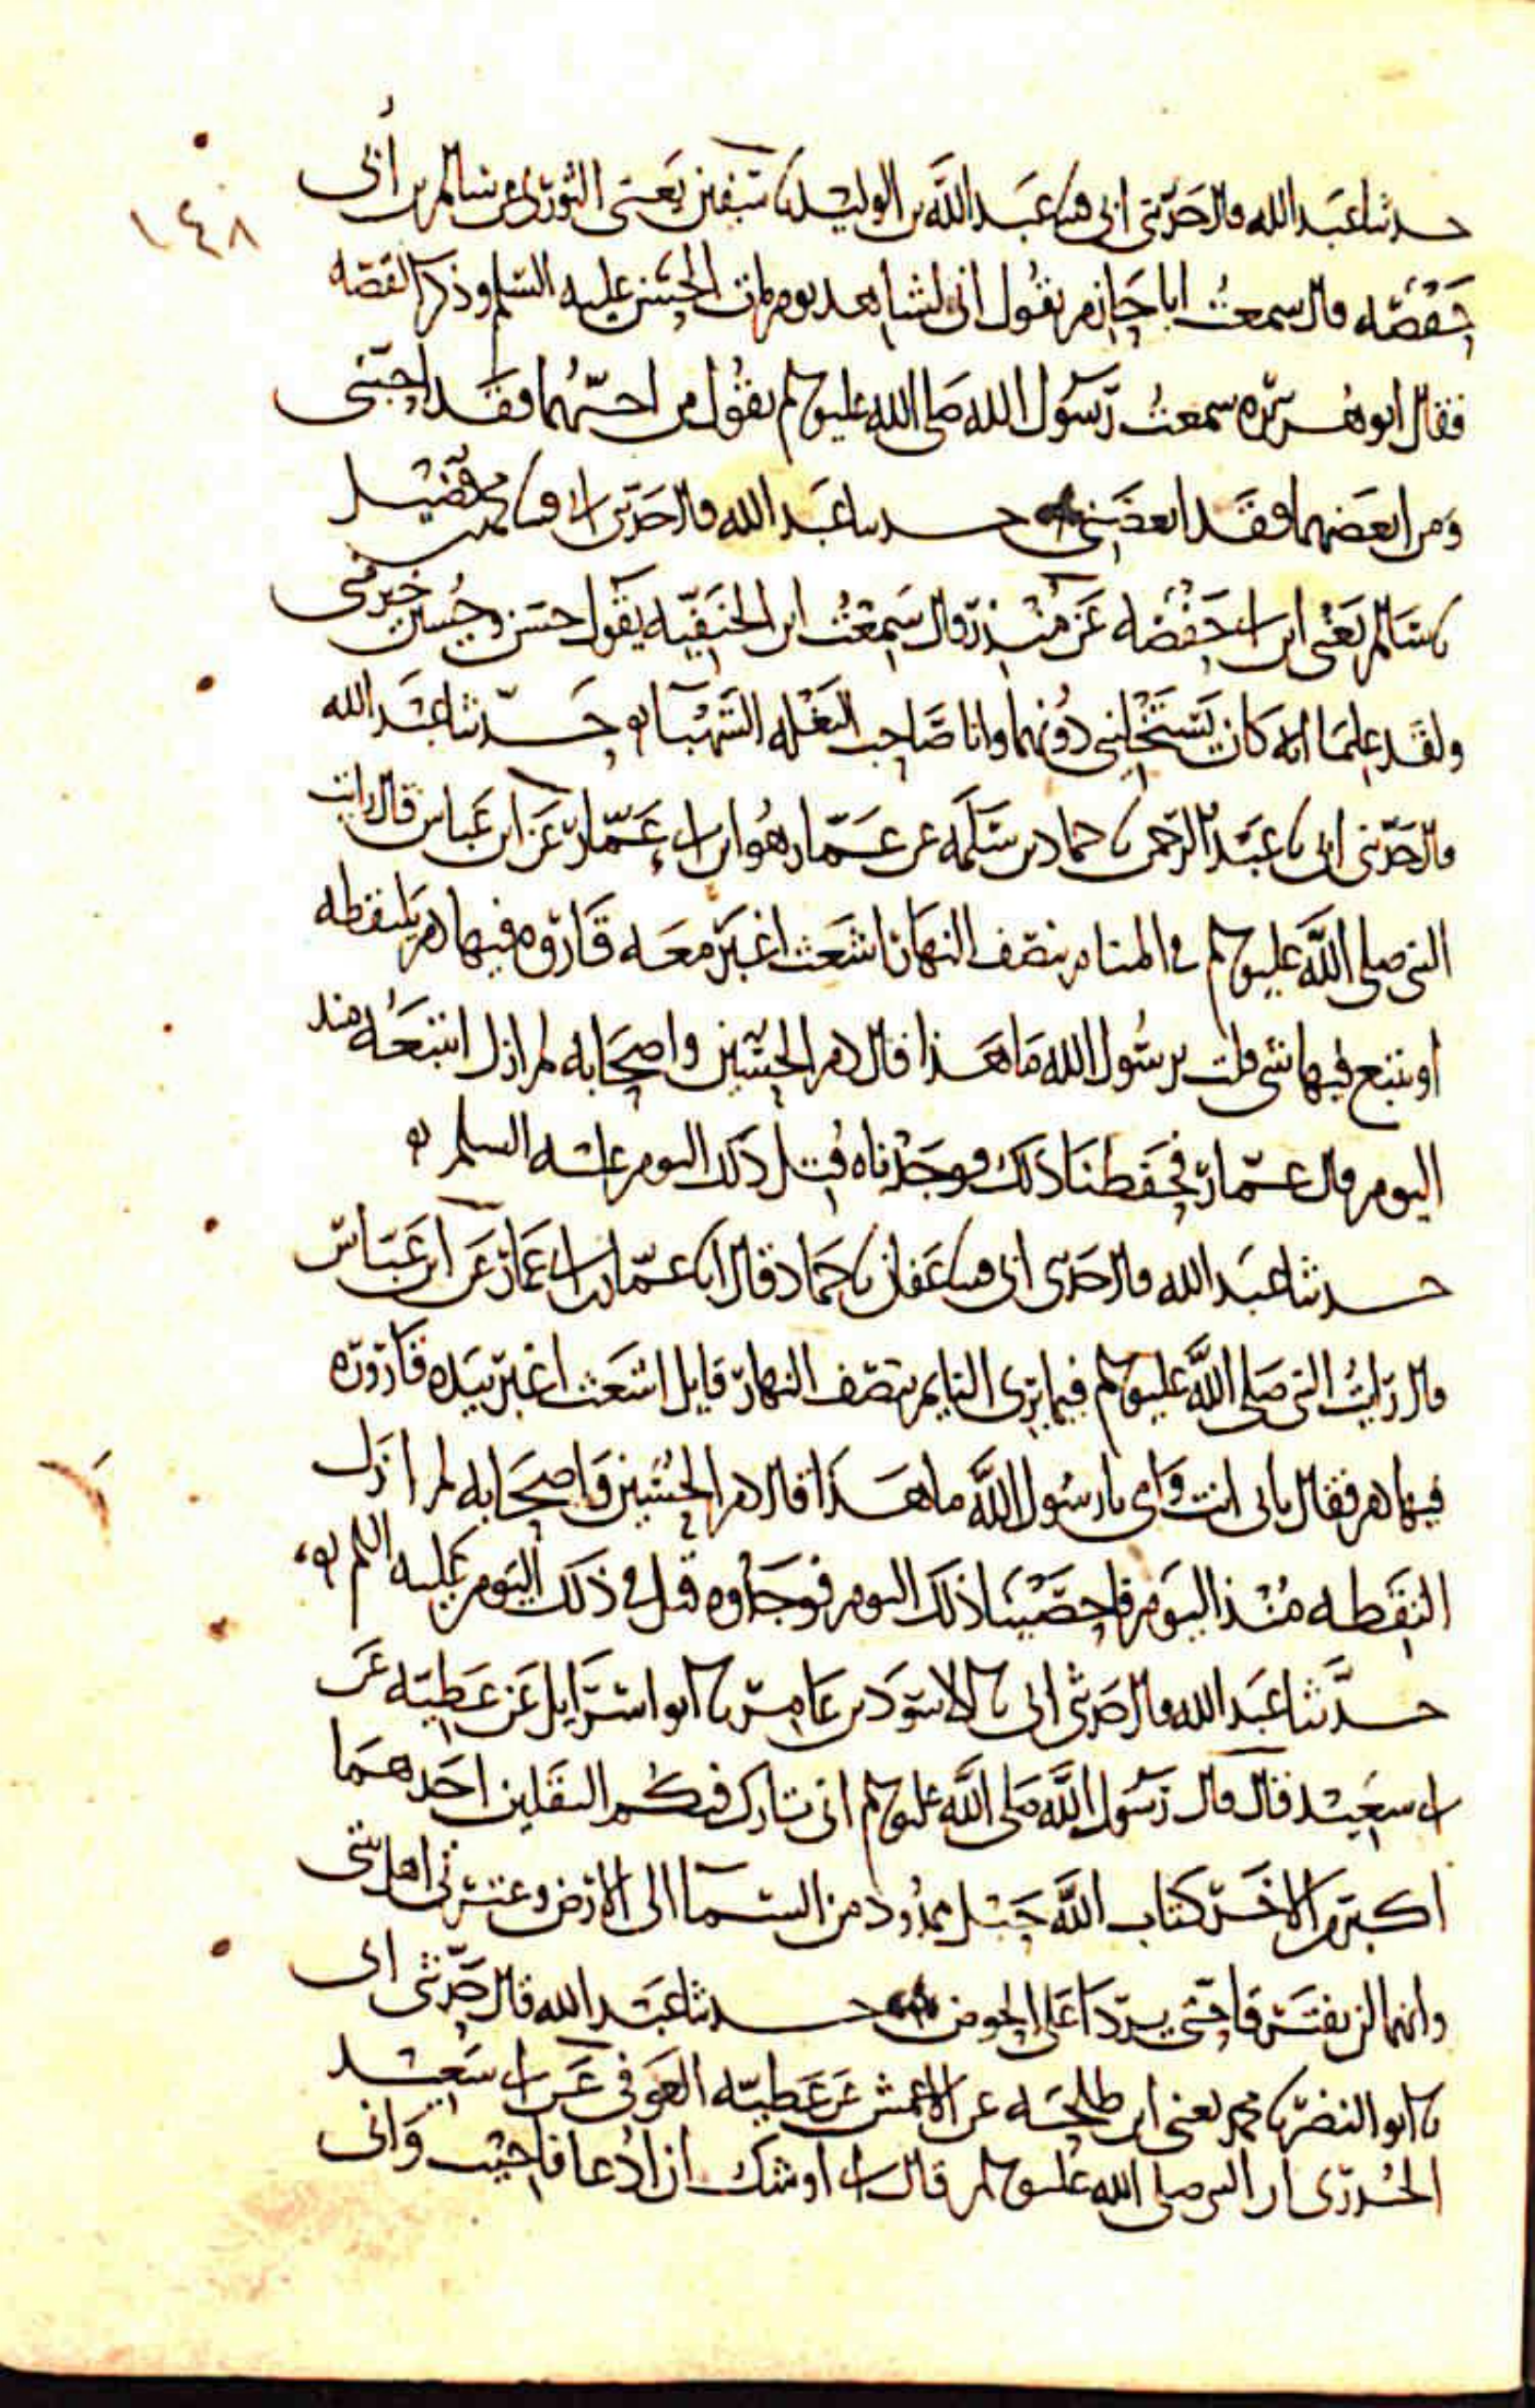 ١٤٨
حدثنا عبد الله قال حدثني ابي قثنا عبد الله بن الوليد نا سفين يعني الثوري عن سالم بن أبي
حفصه قال سمعت ابا حازم يقول اني لشاهد يوم مات الحسن عليه السلم وذكر القصه
فقال ابو هريره سمعت رسول الله صلى الله عليه وسلم يقول من احبهما فقد احبني
ومن ابغضهما فقد ابغضني حدثنا عبد الله قال حدثني ابي قثنا محمد بن فضيل
نا سالم يعني ابن ابي حفصه عن منذر قال سمعت ابن الحنفيه يقول حسن وحسين خير مني
ولقد علما انه كان يستخليني دونهما وانا صاحب البغله الشهبا حدثنا عبد الله
قال حدثني ابي نا عبد الرحمن نا حماد بن سلمه عن عمار هو ابن ابي عمار عن ابن عباس قال رايت
النبي صلى الله عليه وسلم في المنام بنصف النهار اشعث اغبر معه قاروره فيها دم يلتقطه
او يتتبع فيها شي قلت يرسول الله ما هذا قال دم الحسين واصحابه لم ازل اتتبعه منذ
اليوم قال عمار فحفظنا ذلك فوجدناه قتل ذلك اليوم عليه السلم
حدثنا عبد الله قال حدثني ابي قثنا عفان نا حماد قال انا عمار بن ابي عمار عن ابن عباس
قال رايت النبي صلى الله عليه وسلم فيما يرى النايم بنصف النهار قايل اشعث اغبر بيده قاروره
فيها دم فقال بابي انت وامي يا رسول الله ما هذا قال دم الحسين واصحابه لم ازل
التقطه منذ اليوم فاحصينا ذلك اليوم فوجدوه قتل في ذلك اليوم عليه السلم
حدثنا عبد الله قال حدثني ابي نا الاسود بن عامر نا ابو اسرايل عن عطيه عن
ابي سعيد قال قال رسول الله صلى الله عليه وسلم اني تارك فيكم الثقلين احدهما
اكبر من الاخر كتاب الله حبل ممدود من السما الى الارض وعترتي اهل بيتي
وانهما لن يفترقا حتى يردا على الحوض حدثنا عبد الله قال حدثني ابي
نا ابو النضر نا محمد يعني ابن طلحه عن الاعمش عن عطيه العوفي عن ابي سعيد
الخدري ان النبي صلى الله عليه وسلم قال اني اوشك ان ادعا فاجيب واني